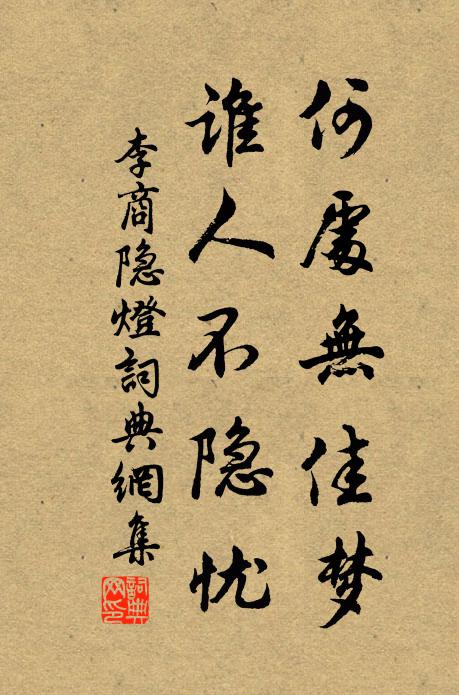 何處無佳梦
谁人不隐忧
李商隐燈詞典網集
詞典网印